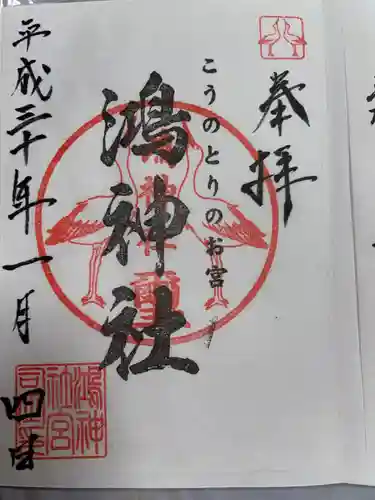 奉拝
こうのとりのお宮
鴻神社
平成三十年一月四日
鴻神
社宮
司印